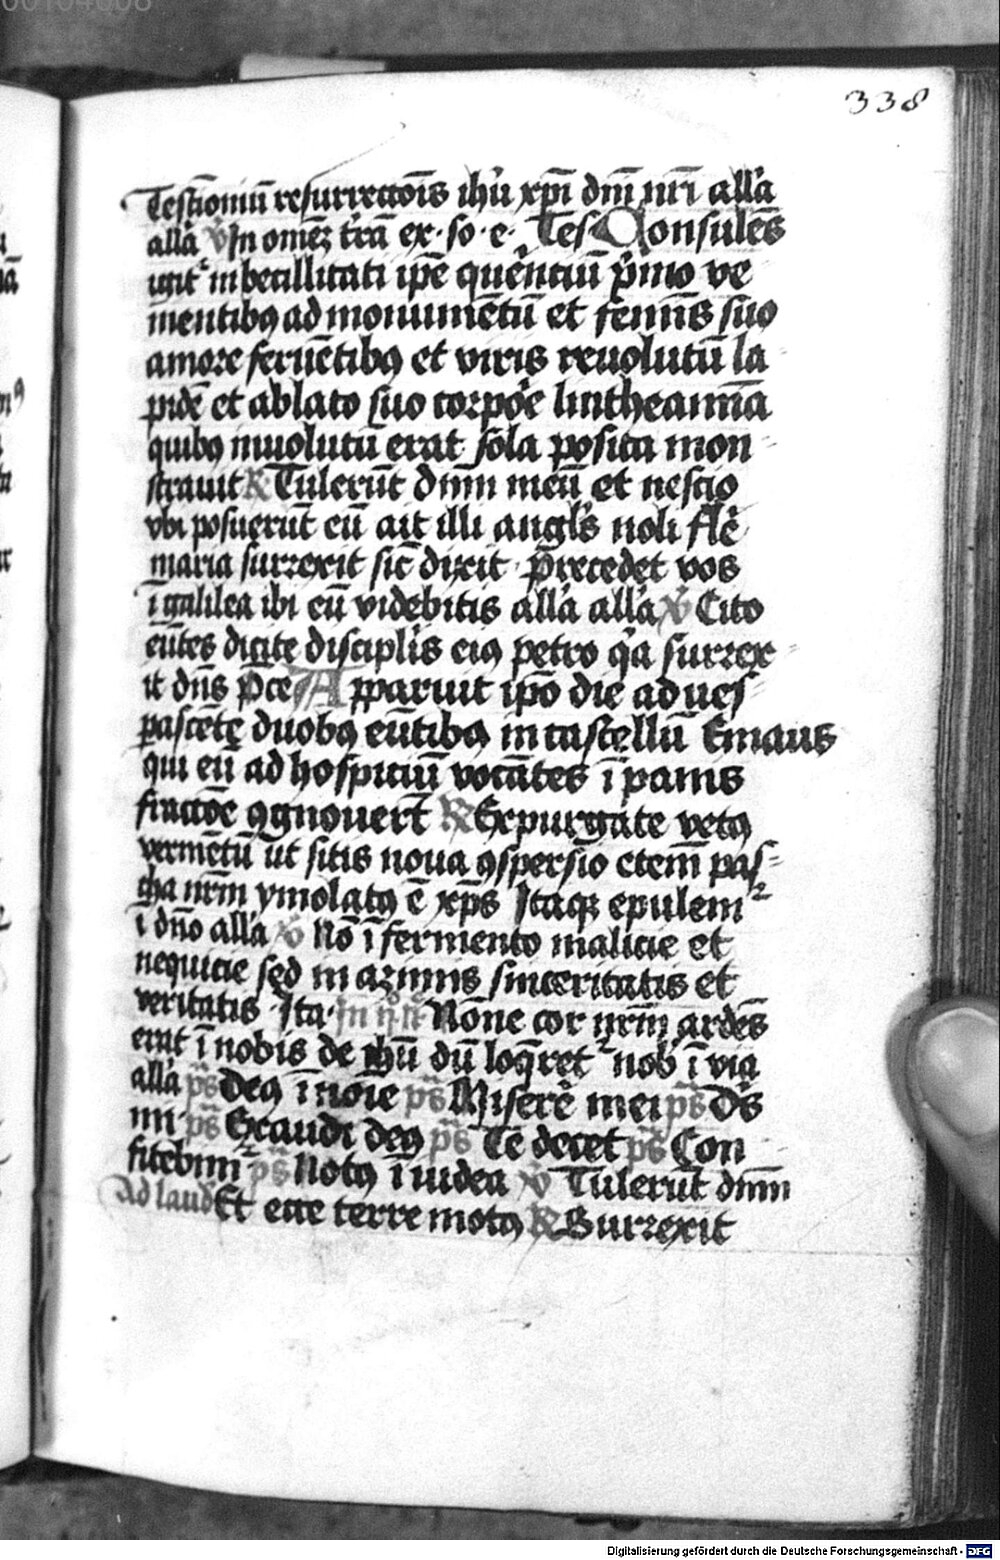 338
Testĩoniũ resurrectõis ihũ xpĩ dnĩ nrĩ alla
alla v̾ In omẽz trã ex · so · e · Tes Consulẽs
igit imbecillitati ipẽ quẽntiũ pimo ve
nientibꝯ ad monumẽtũ et femĩs suo
amore feruẽtibꝯ et viris reuolutũ la
pidẽ et ablato suo corpoe lintheamĩa
quibꝯ inuolutũ erat sola posita mon
strauit R Tulerũt dnm meũ et nescio
vbi posuerũt eũ ait illi angls noli fle
maria surrexit sic̃ dixit · Precedet vos
ĩ galilea ibi eũ videbitis alla alla v̾ Cito
eũtes dicite discipl̃s eiꝯ petro qa surrex
it dñs Pce Apparuit ipo die ad ves
pascẽtẽ duobꝯ eũtibꝯ in castellũ Emaus
qui eũ ad hospiciũ vocãtes ĩ panis
fractõe ꝯgnouert̃ R Expurgate vetꝯ
vermẽtũ ut sitis noua ꝯspersio etem̃ pas
cha nrm̃ ymolatꝯ ẽ xp̃s Itaqꝫ epulem
ĩ dño alla v̾ Nõ ĩ fermento malicie et
nequicie sed in azimis sinceritatis et
veritatis · Ita · In Nõne cor nrm̃ ardẽs
erat ĩ nobis de ihũ dũ loq̃ret nob̃ ĩ via
alla ps̃ Deꝯ ĩ noĩe ps̃ Miserẽ mei ps̃ Ds̃
mi · ps̃ Exaudi deꝯ ps̃ Te decet ps̃ Con
fitebim̃ ps̃ Notꝯ ĩ iudea v̾ Tulerũt dnm̃
Ad laud Et ecce terre motꝯ R Surrexit
Digitalisierung gefördert durch die Deutsche Forschungsgemeinschaft - DFG